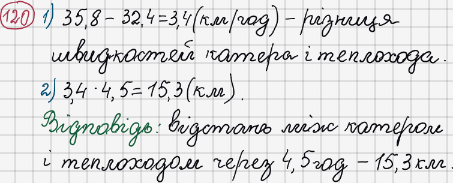 120 1) 35,8 - 32,4 = 3,4 (км/год) - різниця
швидкостей катера і теплохода.
2) 3,4 · 4,5 = 15,3 (км).
Відповідь: відстань між катером
і теплоходом через 4,5 год - 15,3 км.